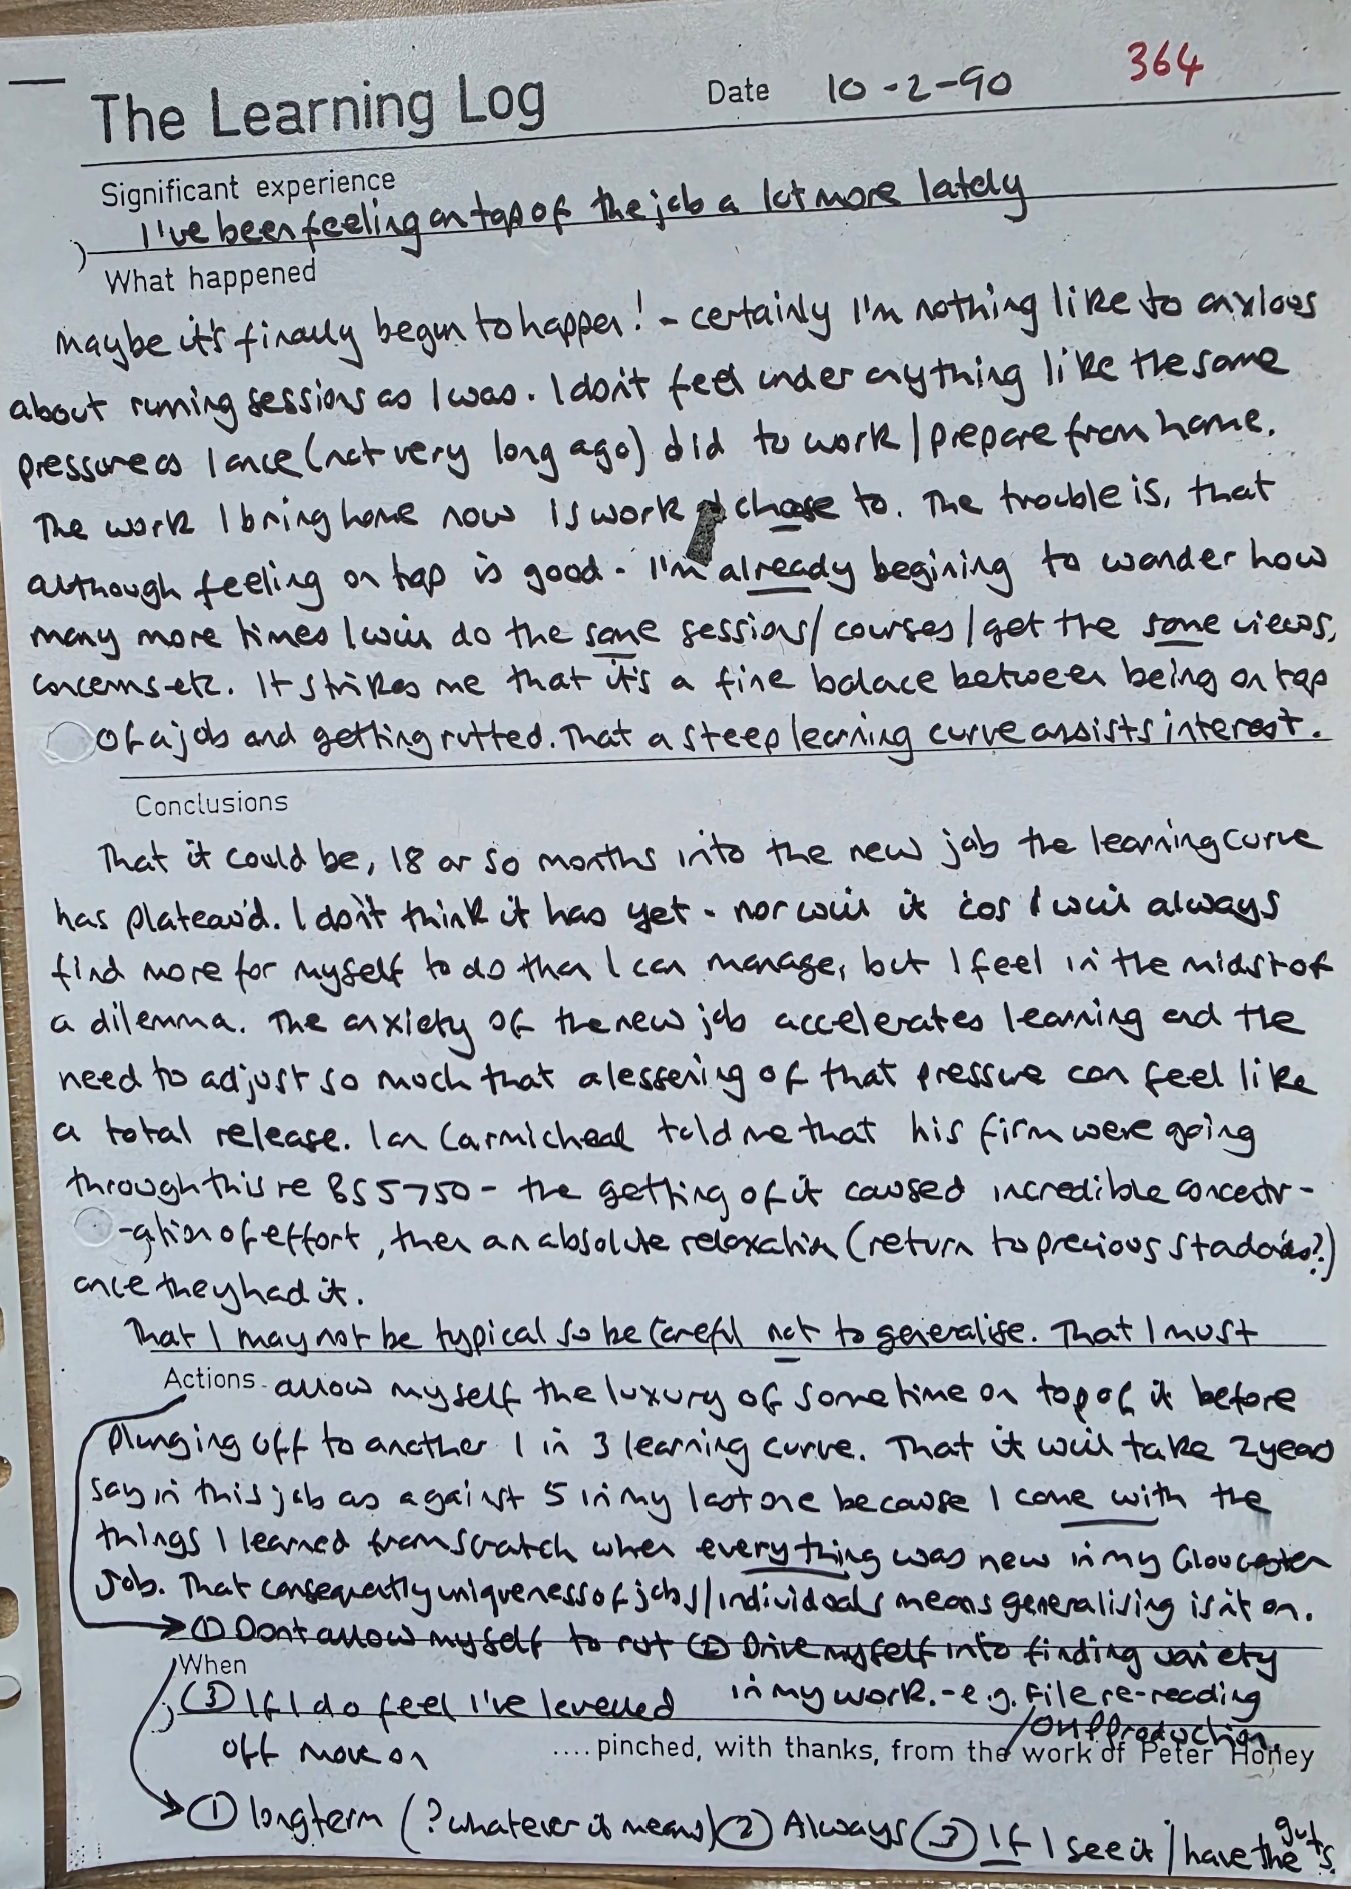 364
The Learning Log Date 10-2-90
Significant experience
I've been feeling on top of the job a lot more lately
What happened
Maybe it's finally begun to happen! - certainly I'm nothing like to anxious
about running sessions as I was. I don't feel under anything like the same
pressure as I once (not very long ago) did to work/prepare from home.
The work I bring home now is work I chose to. The trouble is, that
although feeling on top is good - I'm already begining to wonder how
many more times I will do the same sessions/courses/get the same views,
concerns etc. It strikes me that it's a fine balace between being on top
of a job and getting rutted. That a steep learning curve assists interest.
Conclusions
That it could be, 18 or so months into the new job the learning curve
has plateau'd. I don't think it has yet - nor will it cos I will always
find more for myself to do than I can manage, but I feel in the midst of
a dilemma. The anxiety of the new job accelerates learning and the
need to adjust so much that a lessening of that pressure can feel like
a total release. Ian Carmicheal told me that his firm were going
through this re BS5750 - the getting of it caused incredible concentr-
-ation of effort, then an absolute relaxation (return to precious stadards?)
once they had it.
That I may not be typical so be careful not to generalise. That I must
Actions - allow myself the luxury of some time on top of it before
plunging off to another 1 in 3 learning curve. That it will take 2 years
say in this job as against 5 in my last one because I come with the
things I learned from scratch when everything was new in my Gloucester
Job. That consequently uniqueness of jobs/individuals means generalising isn't on.
① Dont allow myself to rut ② Drive myself into finding variety
When
③ If I do feel I've levelled in my work. - e.g. File re-reading
/OHP production.
off move on ....pinched, with thanks, from the work of Peter Honey
① longterm (? whatever it means) ② Always ③ If I see it/have the guts.